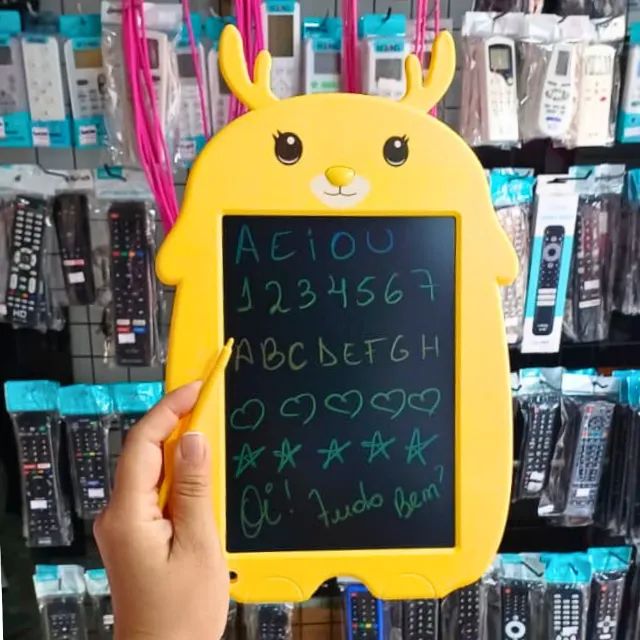 A E i O U
1 2 3 4 5 6 7
A B C D E F G H
Oi! Tudo Bem?